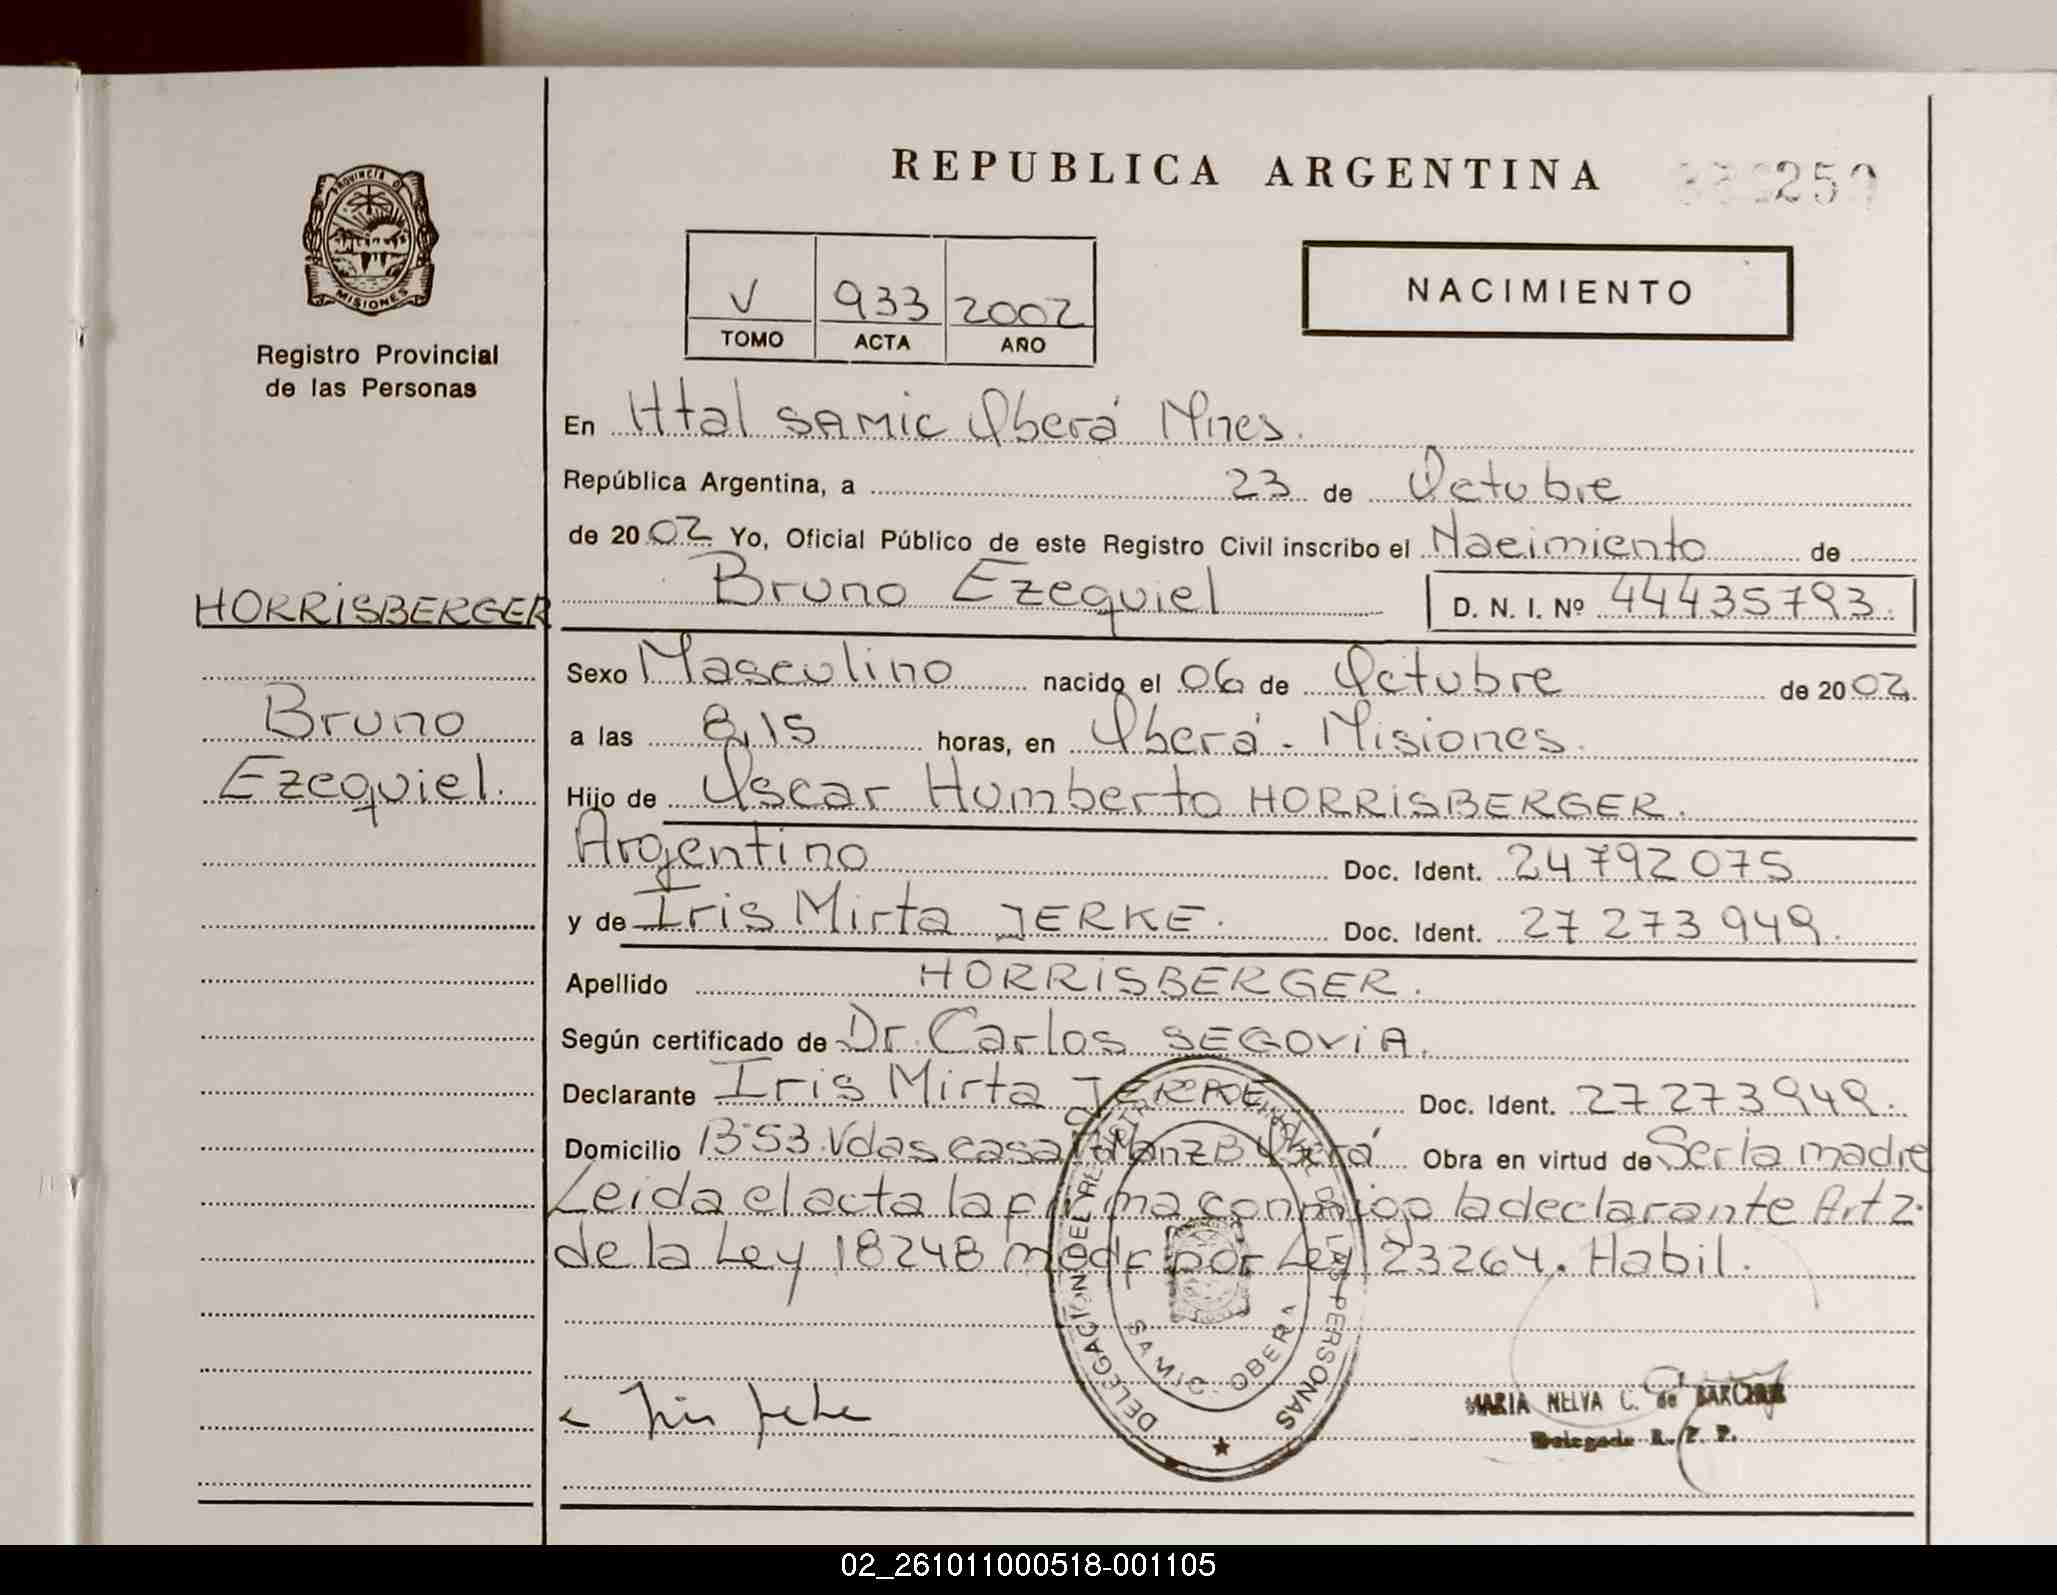 REPUBLICA ARGENTINA
250
PROVINCIA DE
MISIONES
Registro Provincial
de las Personas
V 933 2002
TOMO ACTA AÑO
NACIMIENTO
En Htal SAMIC Oberá Mnes.
República Argentina, a 23 de Octubre
de 2002 Yo, Oficial Público de este Registro Civil inscribo el Nacimiento de
Bruno Ezequiel D. N. I. Nº 44435793.
HORRISBERGER
Bruno
Ezequiel.
Sexo Masculino nacido el 06 de Octubre de 2002.
a las 8,15 horas, en Oberá - Misiones.
Hijo de Oscar Humberto HORRISBERGER.
Argentino Doc. Ident. 24792075
y de Iris Mirta JERKE. Doc. Ident. 27 273 949.
Apellido HORRISBERGER.
Según certificado de Dr. Carlos SEGOVIA.
Declarante Iris Mirta JERKE Doc. Ident. 27 273 949.
Domicilio 1353 Vdas casa Manz B Oberá Obra en virtud de Ser la madre
Leida el acta la firma conmigo la declarante Art 2.
de la Ley 18248 modf por Ley 23264. Habil.
DELEGACION DEL REGISTRO PROVINCIAL DE LAS PERSONAS
SAMIC - OBERA
MARIA NELVA C. de
Delegada R. P. P.
02_261011000518-001105